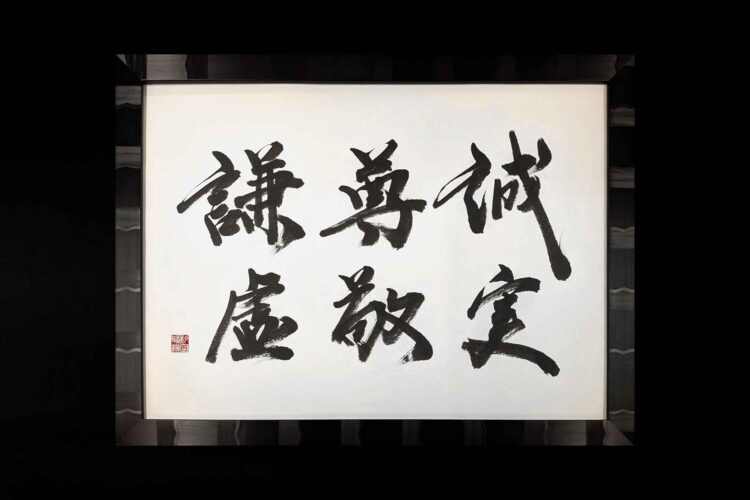 誠実
尊敬
謙虚